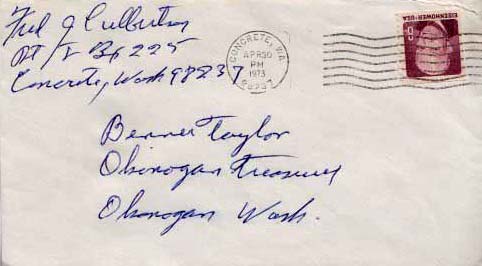 Fred J Culbertson
Rt 1 Bx 225
Concrete, Wash 98237
CONCRETE, WA
APR 30
PM
1973
98237
EISENHOWER·USA
Benner Taylor
Okonogan Treasurer
Okonogan Wash.